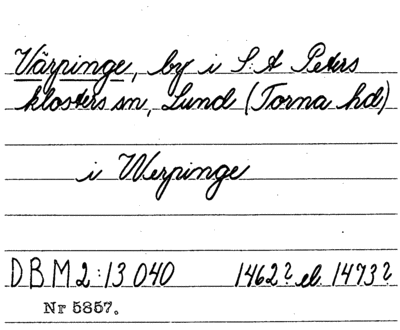 Värpinge, by i S:t Peters
klosters sn, Lund (Torna hd)
i Werpinge
DBM 2:13 040 1462? el. 1473?
Nr 5857.